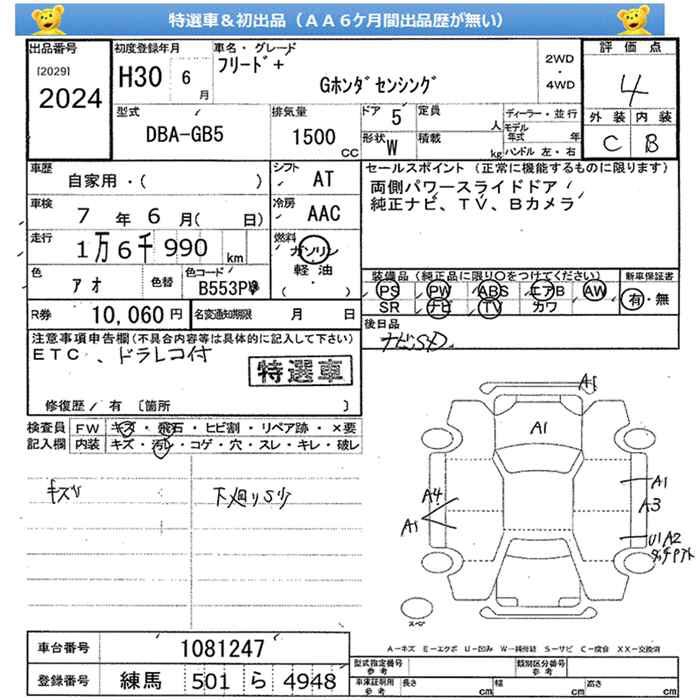 特選車＆初出品（ＡＡ６ケ月間出品歴が無い）
出品番号
[2029]
2024
初度登録年月
H30 6 月
車名・グレード
フリード＋
Gホンダセンシング
2WD
・
4WD
評価点
4
外装 内装
C B
型式
DBA-GB5
排気量
1500 CC
ドア 5
形状 W
定員 人
積載 kg
ディーラー・並行
モデル年式 年
ハンドル 左・右
車歴
自家用・( )
シフト AT
車検
7 年 6 月( 日)
冷房 AAC
走行
1万6千990 km
燃料
ガソリン
軽油・
( )
色
アオ
色替
色コード
B553P
R券 10,060 円
名変通知期限 月 日
セールスポイント（正常に機能するものに限ります）
両側パワースライドドア
純正ナビ、TV、Bカメラ
装備品（純正品に限り○をつけてください）
新車保証書
PS PW ABS エアB AW
SR ナビ TV カワ
有・無
後日品
ナビSD
注意事項申告欄(不具合内容等は具体的に記入して下さい)
ETC、ドラレコ付
特選車
修復歴／有〔箇所 〕
検査員記入欄
FW キズ・飛石・ヒビ割・リペア跡・×要
内装 キズ・汚レ・コゲ・穴・スレ・キレ・破レ
キズ小
下廻りS少
A1
A1
A1
A3
A4
A1
U1A2
A－キズ E－エクボ U－凹み W－補修跡 S－サビ C－腐食 XX－交換済
スペア
車台番号 1081247
登録番号 練馬 501 ら 4948
型式指定番号
参考
類別区分番号
参考
車庫証明用
参考
長さ cm 幅 cm 高さ cm